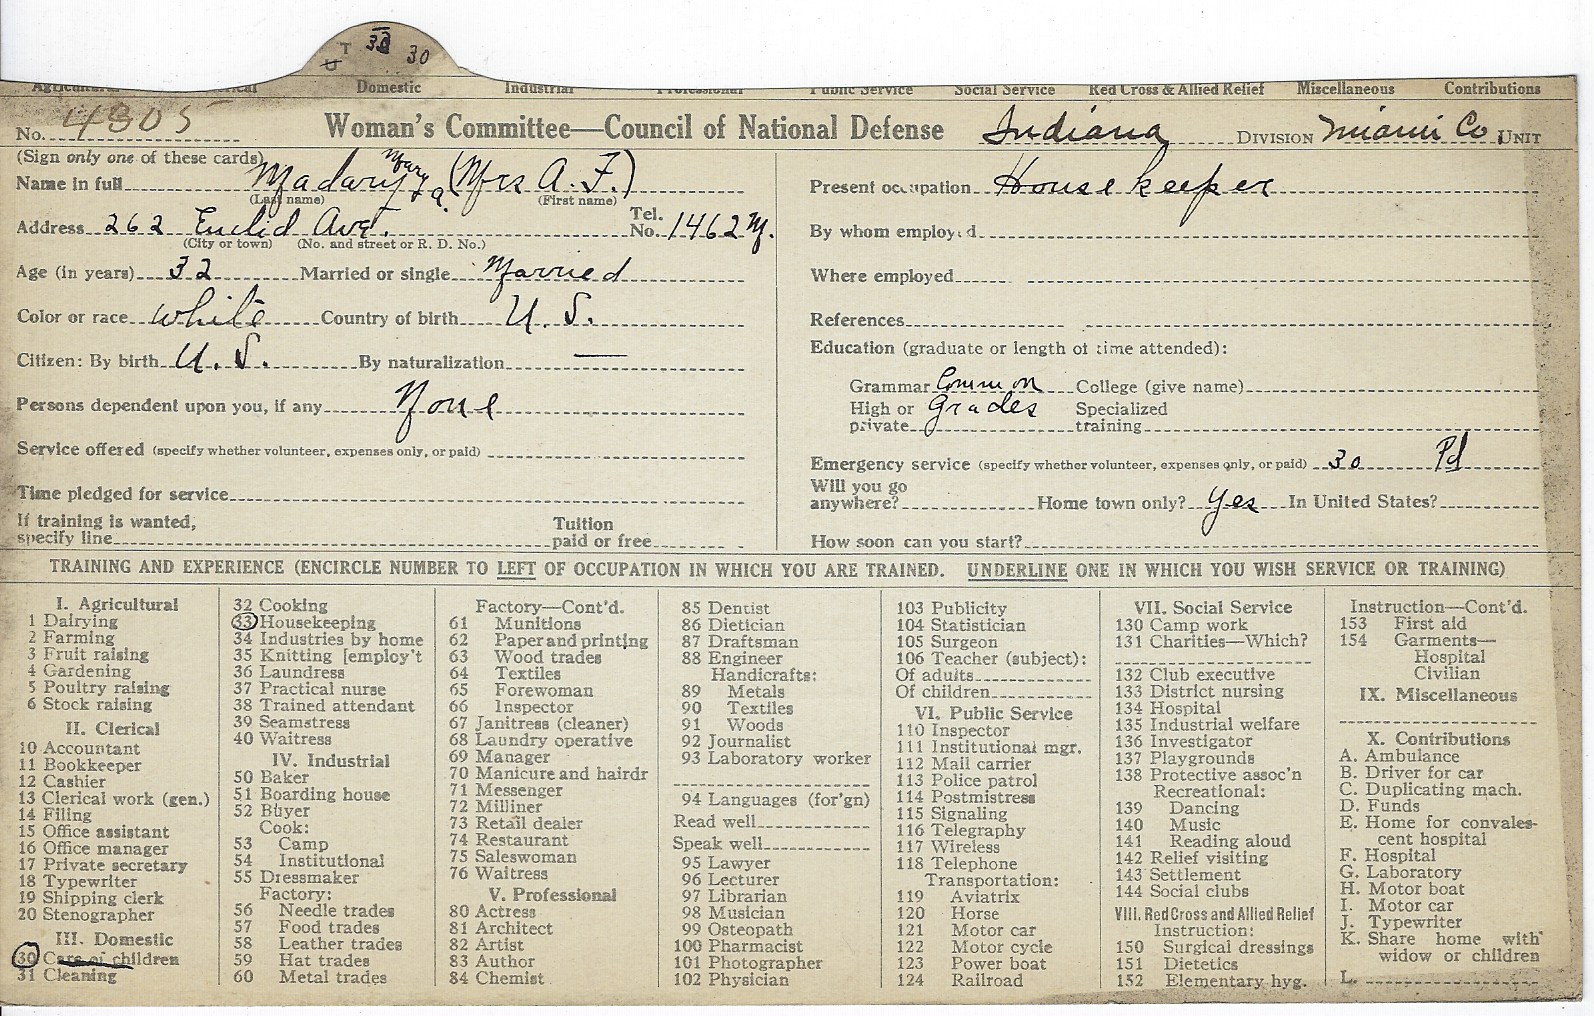 T 30 30
U
Agricultural Clerical Domestic Industrial Professional Public Service Social Service Red Cross & Allied Relief Miscellaneous Contributions
No. 4305 Woman's Committee—Council of National Defense Indiana DIVISION Miami Co UNIT
(Sign only one of these cards)
Name in full Madary Mary (Mrs A. F.)
(Last name) (First name)
Address 262 Euclid Ave. Tel. No. 1462 M.
(City or town) (No. and street or R. D. No.)
Age (in years) 32 Married or single Married
Color or race white Country of birth U. S.
Citizen: By birth U. S. By naturalization —
Persons dependent upon you, if any None
Service offered (specify whether volunteer, expenses only, or paid)
Time pledged for service
If training is wanted, specify line Tuition paid or free
Present occupation Housekeeper
By whom employed
Where employed
References
Education (graduate or length of time attended):
Grammar Common College (give name)
High or private Grades Specialized training
Emergency service (specify whether volunteer, expenses only, or paid) 30 Pd
Will you go anywhere? Home town only? Yes In United States?
How soon can you start?
TRAINING AND EXPERIENCE (ENCIRCLE NUMBER TO LEFT OF OCCUPATION IN WHICH YOU ARE TRAINED. UNDERLINE ONE IN WHICH YOU WISH SERVICE OR TRAINING)
I. Agricultural
1 Dairying
2 Farming
3 Fruit raising
4 Gardening
5 Poultry raising
6 Stock raising
II. Clerical
10 Accountant
11 Bookkeeper
12 Cashier
13 Clerical work (gen.)
14 Filing
15 Office assistant
16 Office manager
17 Private secretary
18 Typewriter
19 Shipping clerk
20 Stenographer
III. Domestic
30 Care of children
31 Cleaning
32 Cooking
33 Housekeeping
34 Industries by home
35 Knitting [employ't
36 Laundress
37 Practical nurse
38 Trained attendant
39 Seamstress
40 Waitress
IV. Industrial
50 Baker
51 Boarding house
52 Buyer
Cook:
53 Camp
54 Institutional
55 Dressmaker
Factory:
56 Needle trades
57 Food trades
58 Leather trades
59 Hat trades
60 Metal trades
Factory—Cont'd.
61 Munitions
62 Paper and printing
63 Wood trades
64 Textiles
65 Forewoman
66 Inspector
67 Janitress (cleaner)
68 Laundry operative
69 Manager
70 Manicure and hairdr
71 Messenger
72 Milliner
73 Retail dealer
74 Restaurant
75 Saleswoman
76 Waitress
V. Professional
80 Actress
81 Architect
82 Artist
83 Author
84 Chemist
85 Dentist
86 Dietician
87 Draftsman
88 Engineer
Handicrafts:
89 Metals
90 Textiles
91 Woods
92 Journalist
93 Laboratory worker
94 Languages (for'gn)
Read well
Speak well
95 Lawyer
96 Lecturer
97 Librarian
98 Musician
99 Osteopath
100 Pharmacist
101 Photographer
102 Physician
103 Publicity
104 Statistician
105 Surgeon
106 Teacher (subject):
Of adults
Of children
VI. Public Service
110 Inspector
111 Institutional mgr.
112 Mail carrier
113 Police patrol
114 Postmistress
115 Signaling
116 Telegraphy
117 Wireless
118 Telephone
Transportation:
119 Aviatrix
120 Horse
121 Motor car
122 Motor cycle
123 Power boat
124 Railroad
VII. Social Service
130 Camp work
131 Charities—Which?
132 Club executive
133 District nursing
134 Hospital
135 Industrial welfare
136 Investigator
137 Playgrounds
138 Protective assoc'n
Recreational:
139 Dancing
140 Music
141 Reading aloud
142 Relief visiting
143 Settlement
144 Social clubs
VIII. Red Cross and Allied Relief
Instruction:
150 Surgical dressings
151 Dietetics
152 Elementary hyg.
Instruction—Cont'd.
153 First aid
154 Garments—
Hospital
Civilian
IX. Miscellaneous
X. Contributions
A. Ambulance
B. Driver for car
C. Duplicating mach.
D. Funds
E. Home for convales-
cent hospital
F. Hospital
G. Laboratory
H. Motor boat
I. Motor car
J. Typewriter
K. Share home with
widow or children
L.